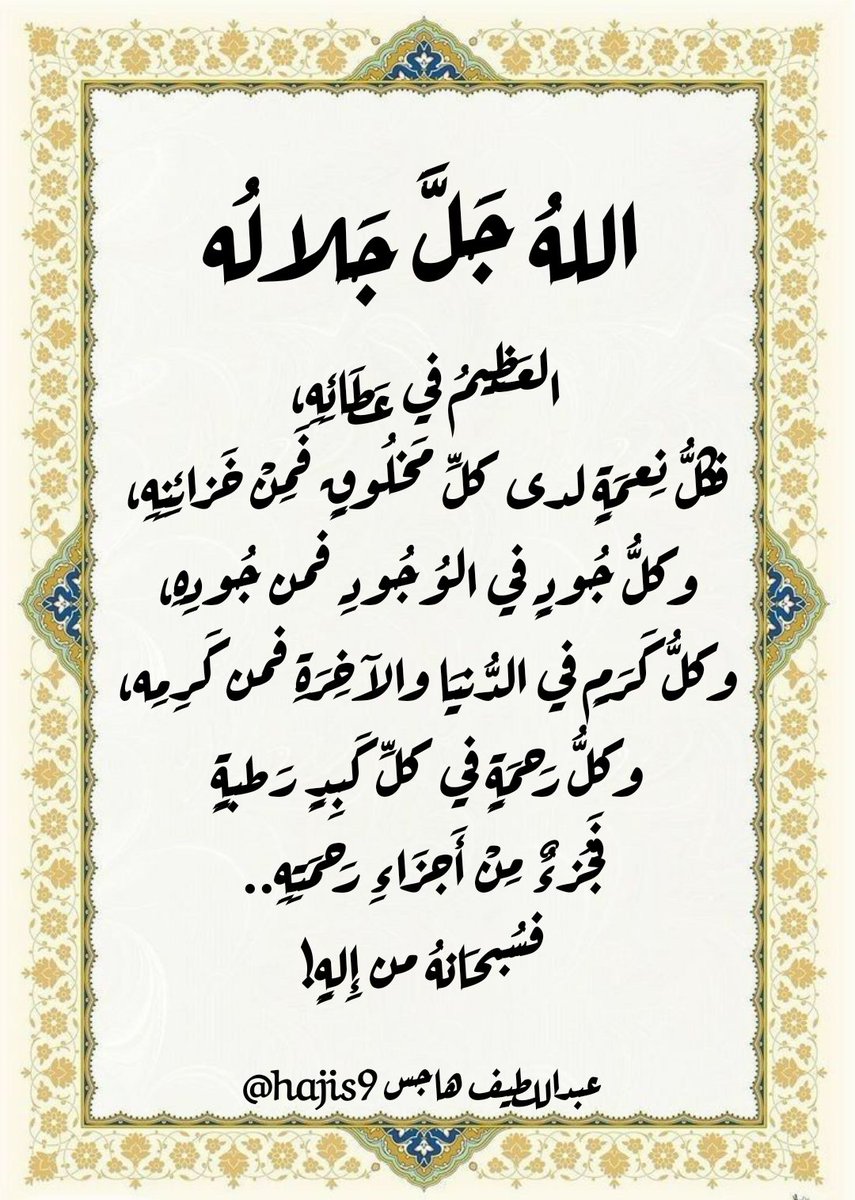 اللهُ جَلَّ جَلالُه
العَظِيمُ في عَطَائِهِ،
فكلُّ نِعمَةٍ لدى كلِّ مَخلُوقٍ فمِنْ خَزائِنِهِ،
وكلُّ جُودٍ في الوُجُودِ فمن جُودِهِ،
وكلُّ كَرَمٍ في الدُّنيَا والآخِرَةِ فمن كَرِمِه،
وكلُّ رَحمَةٍ في كلِّ كَبِدٍ رَطبةٍ
فَجُزءٌ مِنْ أَجزَاءِ رَحمَتِهِ..
فسُبحَانهُ من إِلهٍ!
عبداللطيف هاجس @hajis9